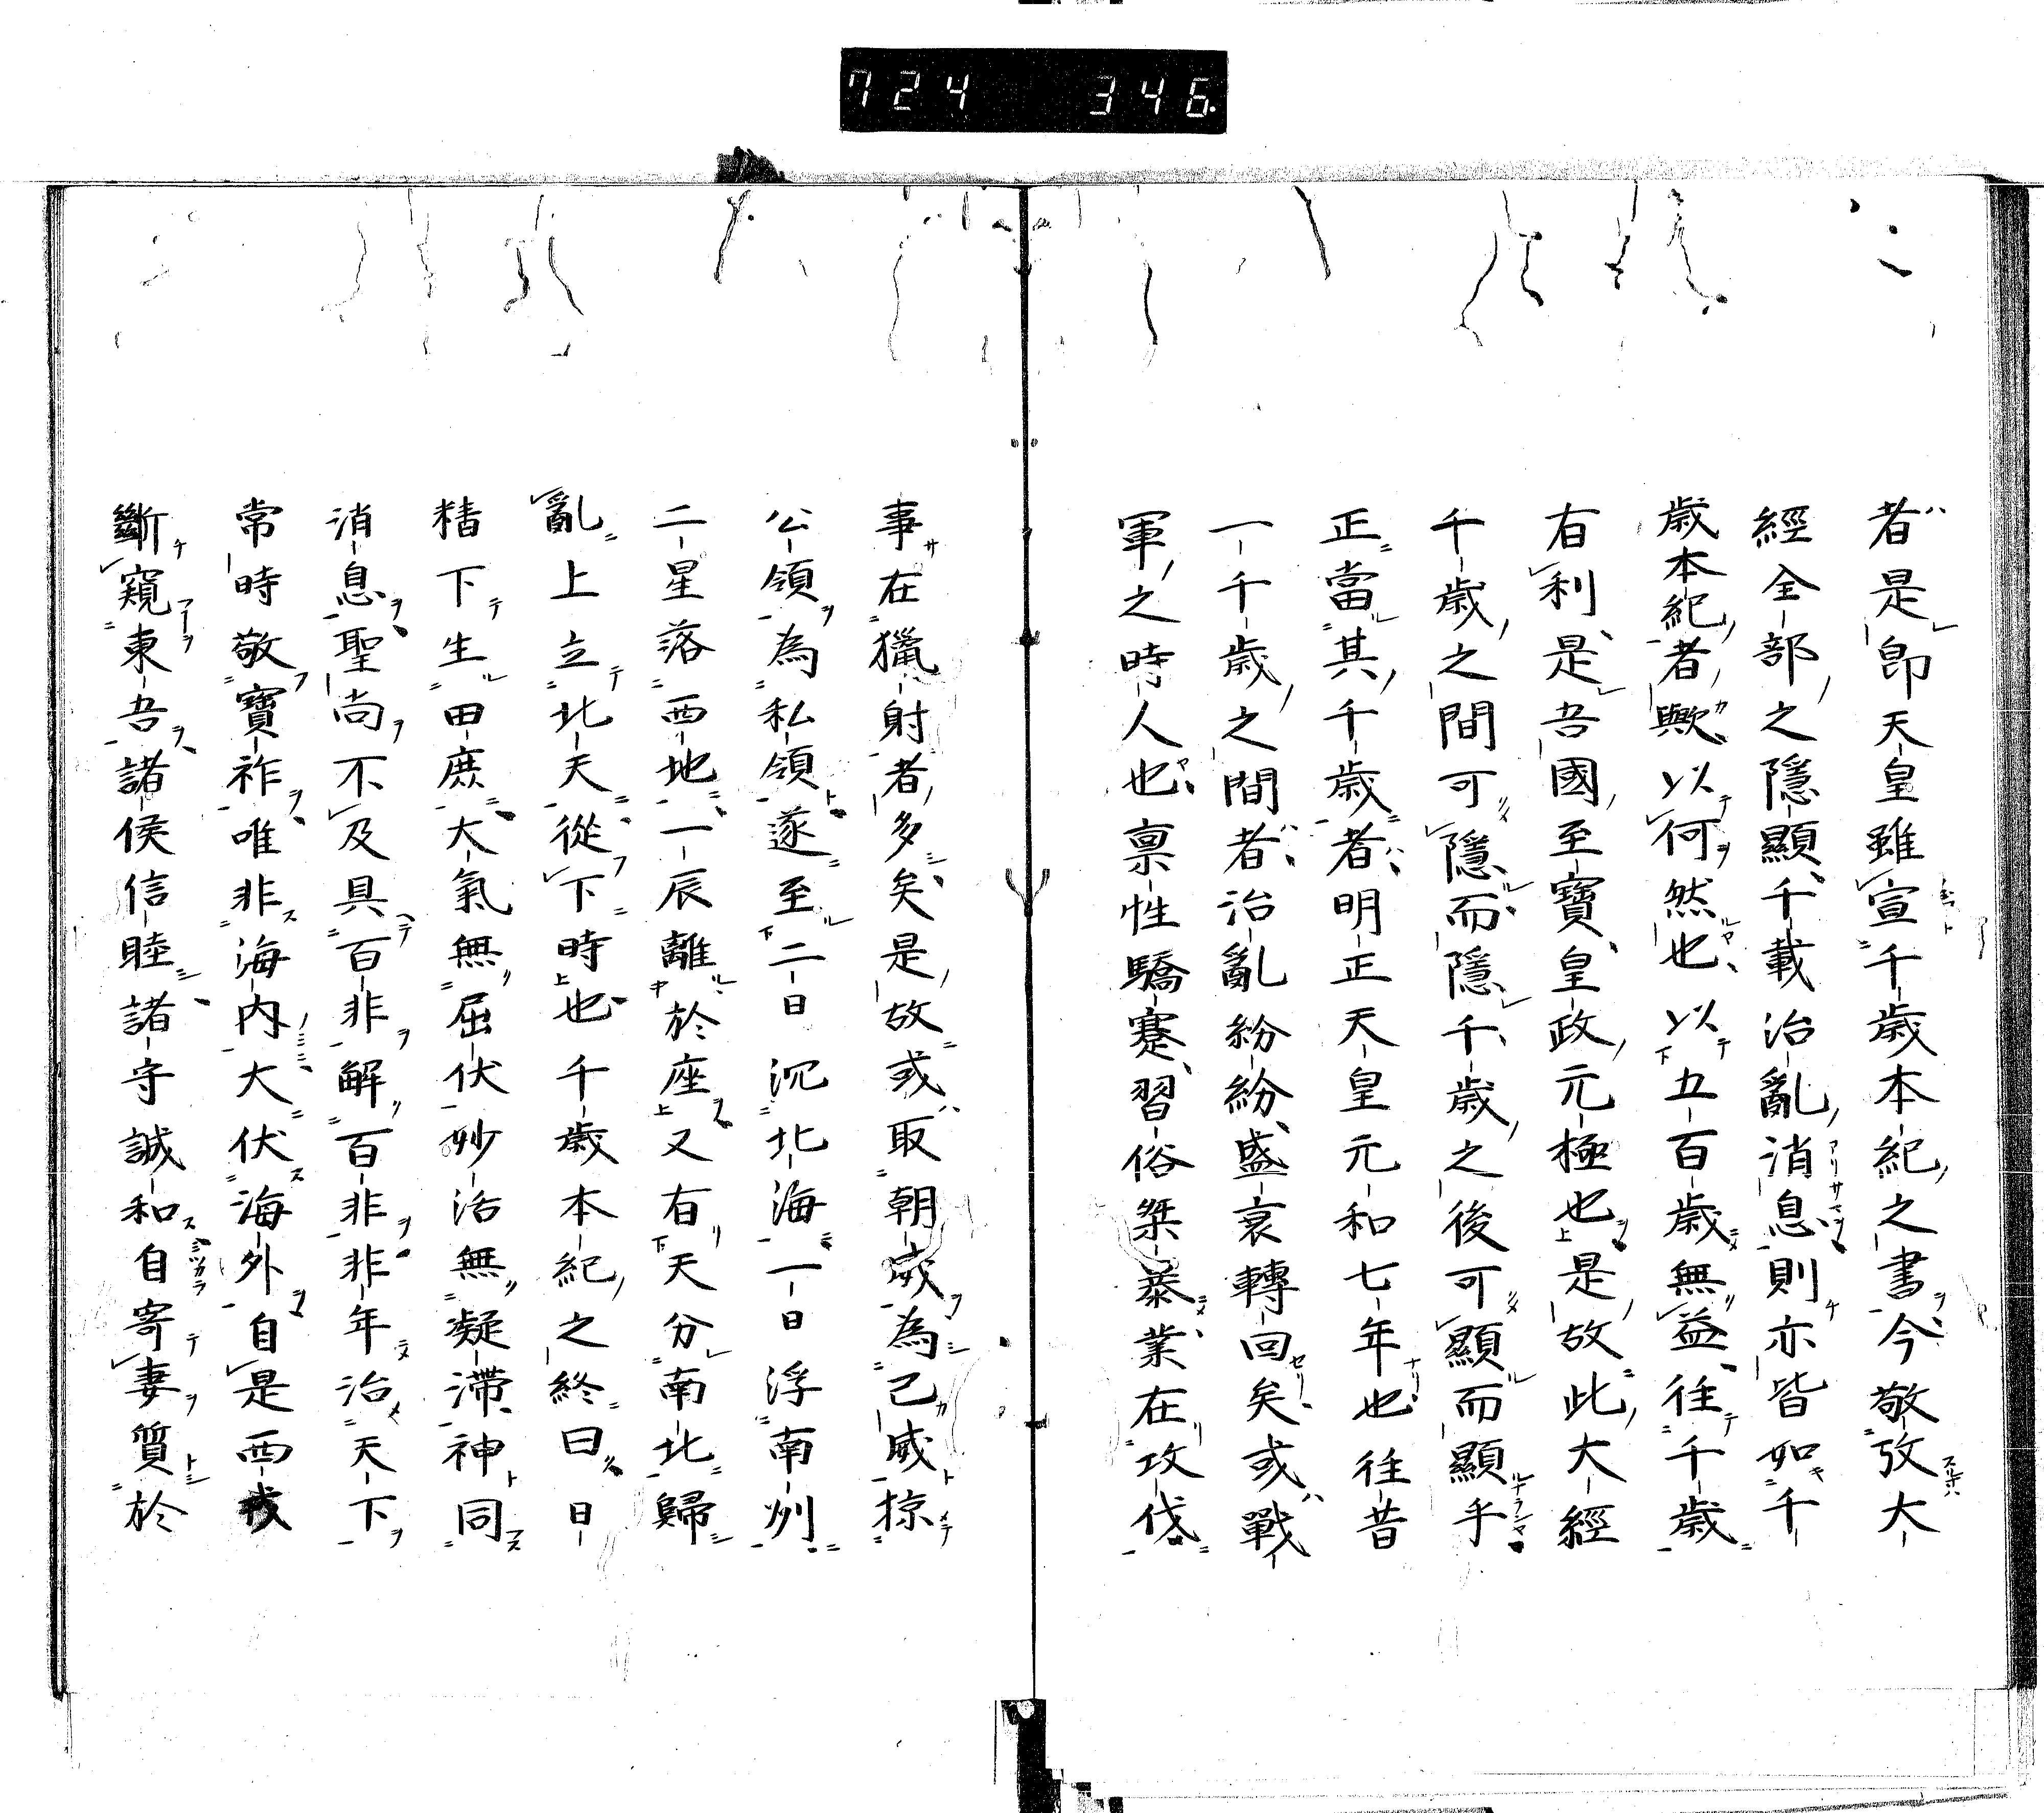 724 346
者是即天皇雖宣千歳本紀之書今敬攷大
經全部之隱顯千載治亂消息則亦皆如千
歳本紀者歟以何然也以五百歳無益往千歳
有利是吾國至寶皇政元極也是故此大經
千歳之間可隱而隱千歳之後可顯而顯乎
正當其千歳者明正天皇元和七年也往昔
一千歳之間者治亂紛紛盛衰轉回矣或戰
軍之時人也稟性驕蹇習俗桀㬥業在攻伐
事在獵射者多矣是故或取朝威為己威掠
公領為私領遂至二日沉北海一日浮南州
二星落西地一辰離於座又有天分南北歸
亂上立北天從下時也千歳本紀之終曰日
精下生田庶大氣無屈伏妙活無凝滯神同
消息聖尚不及具百非解百非非年治天下
常時敬寶祚唯非海内大伏海外自是西戎
斷窺東吾諸侯信睦諸守誠和自寄妻質於